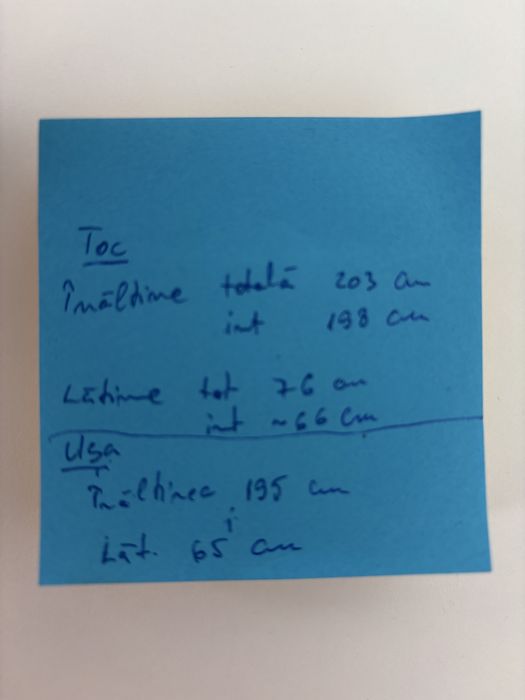 Toc
Înălțime totală 203 cm
int 198 cm
Lățime tot 76 cm
int ~66 cm
Ușa
Înălțimea 195 cm
Lăț. 65 cm